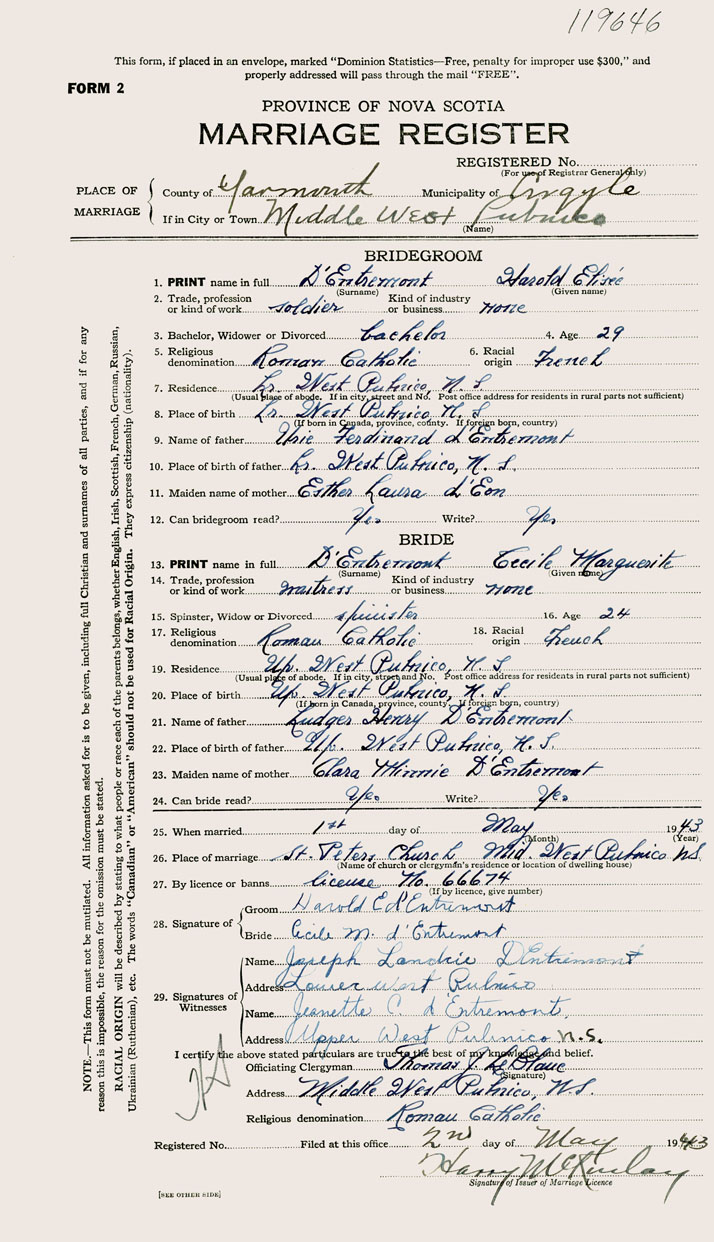 119646
This form, if placed in an envelope, marked "Dominion Statistics—Free, penalty for improper use $300," and
properly addressed will pass through the mail "FREE".
FORM 2
PROVINCE OF NOVA SCOTIA
MARRIAGE REGISTER
REGISTERED No.
(For use of Registrar General only)
PLACE OF MARRIAGE
County of Yarmouth Municipality of Argyle
If in City or Town Middle West Pubnico
(Name)
BRIDEGROOM
1. PRINT name in full D'Entremont Harold Elisée
(Surname) (Given name)
2. Trade, profession or kind of work soldier Kind of industry or business none
3. Bachelor, Widower or Divorced bachelor 4. Age 29
5. Religious denomination Roman Catholic 6. Racial origin French
7. Residence Lr. West Pubnico, N.S.
(Usual place of abode. If in city, street and No. Post office address for residents in rural parts not sufficient)
8. Place of birth Lr. West Pubnico, N.S.
(If born in Canada, province, county. If foreign born, country)
9. Name of father Urie Ferdinand d'Entremont
10. Place of birth of father Lr. West Pubnico, N.S.
11. Maiden name of mother Esther Laura d'Eon
12. Can bridegroom read? Yes Write? Yes
BRIDE
13. PRINT name in full D'Entremont Cecile Marguerite
(Surname) (Given name)
14. Trade, profession or kind of work Kind of industry or business none
15. Spinster, Widow or Divorced spinister 16. Age 24
17. Religious denomination Roman Catholic 18. Racial origin French
19. Residence Up. West Pubnico, N.S.
(Usual place of abode. If in city, street and No. Post office address for residents in rural parts not sufficient)
20. Place of birth Up. West Pubnico, N.S.
(If born in Canada, province, county. If foreign born, country)
21. Name of father Ludger Henry D'Entremont
22. Place of birth of father Up. West Pubnico, N.S.
23. Maiden name of mother Clara Minnie D'Entremont
24. Can bride read? Yes Write? Yes
25. When married 1st day of May 1943
(Month) (Year)
26. Place of marriage St. Peters Church Midd. West Pubnico N.S.
(Name of church or clergyman's residence or location of dwelling house)
27. By licence or banns license No. 66674
(If by licence, give number)
28. Signature of
Groom Harold E d'Entremont
Bride Cecile M. d'Entremont
29. Signatures of Witnesses
Name Joseph Landrie D'Entremont
Address Lower West Pubnico
Name Jeanette C. d'Entremont.
Address Upper West Pubnico N.S.
I certify the above stated particulars are true to the best of my knowledge and belief.
Officiating Clergyman Thomas J. LeBlanc
(Signature)
Address Middle West Pubnico, N.S.
Religious denomination Roman Catholic
Registered No. Filed at this office 2nd day of May 1943
Harry McKinlay
Signature of Issuer of Marriage Licence
[SEE OTHER SIDE]
NOTE.—This form must not be mutilated. All information asked for is to be given, including full Christian and surnames of all parties, and if for any
reason this is impossible, the reason for the omission must be stated.
RACIAL ORIGIN will be described by stating to what people or race each of the parents belongs, whether English, Irish, Scottish, French, German, Russian,
Ukrainian (Ruthenian), etc. The words "Canadian" or "American" should not be used for Racial Origin. They express citizenship (nationality).